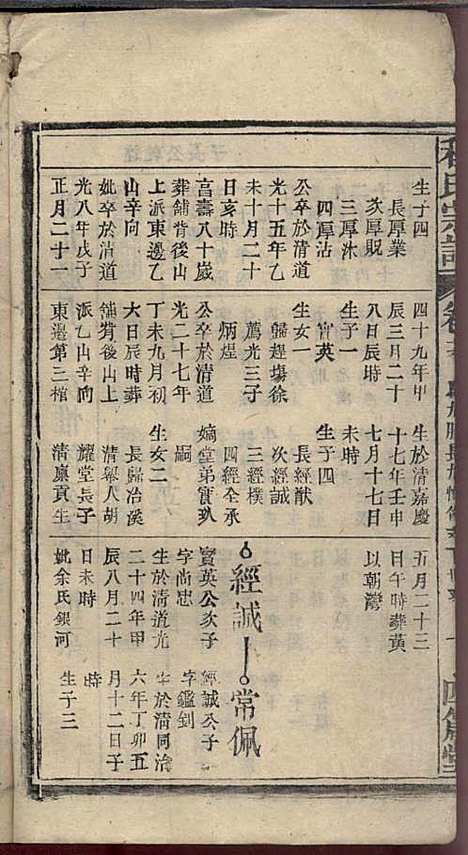 程氏宗譜
生子四
長厚業
次厚貺
三厚沐
四厚沾
公卒於清道
光十五年乙
未十月二十
日亥時
享壽八十歲
葬舖背後山
上派東邊乙
山辛向
妣卒於清道
光八年戊子
正月二十一
四十九年甲
辰三月二十
八日辰時
生子一
寶英
生女一
歸趕塲徐
薦光三子
炳煋
公卒於清道
光二十七年
丁未九月初
六日辰時葬
舖背後山上
派乙山辛向
東邊第三棺
生於清嘉慶
十七年壬申
七月十七日
未時
生子四
長經猷
次經誠
三經樸
四經全承
嫡堂弟寶玖
嗣
生女二
長歸冶溪
清舉人胡
耀堂長子
清廩貢生
五月二十三
日午時葬黃
以朝灣
經誠
常佩
寶英公次子
字尚忠
生於清道光
二十四年甲
辰八月二十
日未時
妣余氏銀河
經誠公子
字鑑釗
生於清同治
六年丁卯五
月十二日子
時
生子三